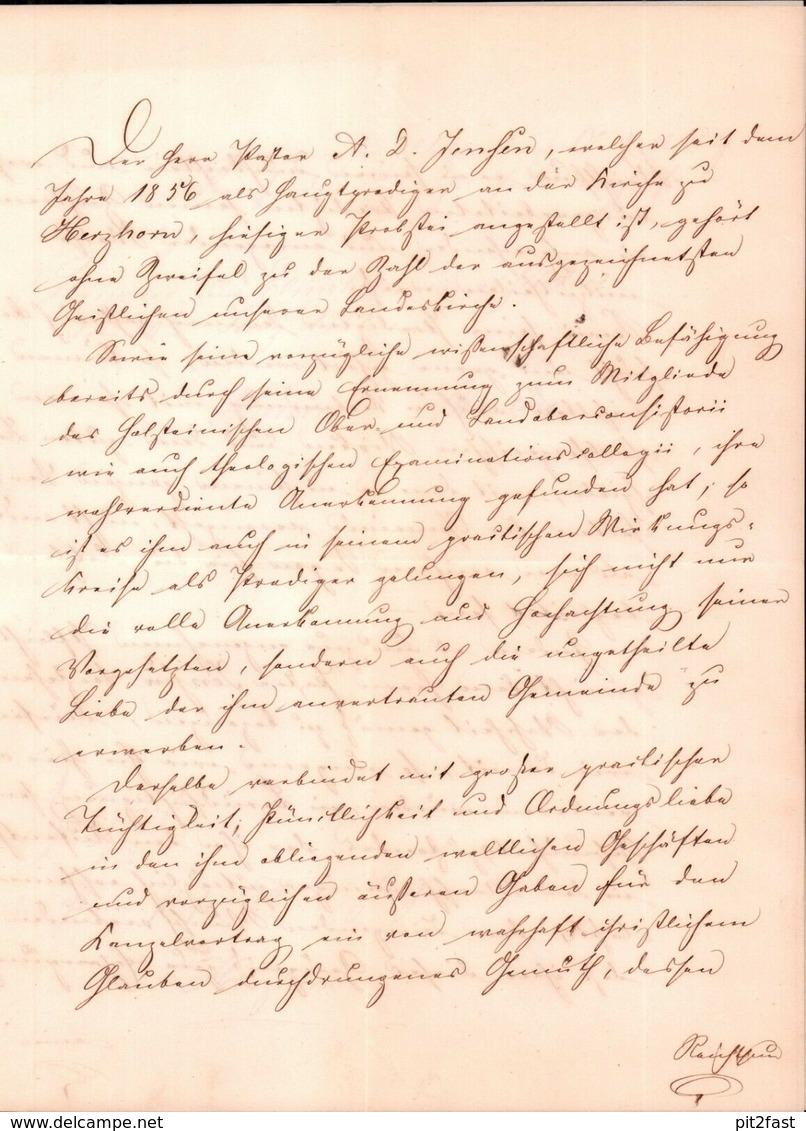 Der Herr Pastor A. D. Jensen, welcher seit dem
Jahre 1856 als Hauptprediger an der Kirche zu
Herzhorn, hiesiger Probstei angestellt ist, gehört
ohne Zweifel zu der Zahl der ausgezeichnetsten
Geistlichen unserer Landeskirche.
Sowie seine vorzügliche wissenschaftliche Befähigung
bereits durch seine Ernennung zum Mitgliede
des Holsteinischen Ober- und Landoberconsistorii
wie auch theologischen Examinationscollegii, ihre
wohlverdiente Anerkennung gefunden hat, so
ist es ihm auch in seinem practischen Wirkungs-
kreise als Prediger gelungen, sich nicht nur
die volle Anerkennung und Hochachtung seiner
Vorgesetzten, sondern auch die ungetheilte
Liebe der ihm anvertrauten Gemeinde zu
erwerben.
Derselbe verbindet mit großer practischer
Tüchtigkeit, Pünctlichkeit und Ordnungsliebe
in den ihm obliegenden weltlichen Geschäften
und vorzüglichen äußeren Gaben für den
Kanzelvortrag ein von wahrhaft christlichem
Glauben durchdrungenes Gemüth, dessen
Reichthum
pit2fast